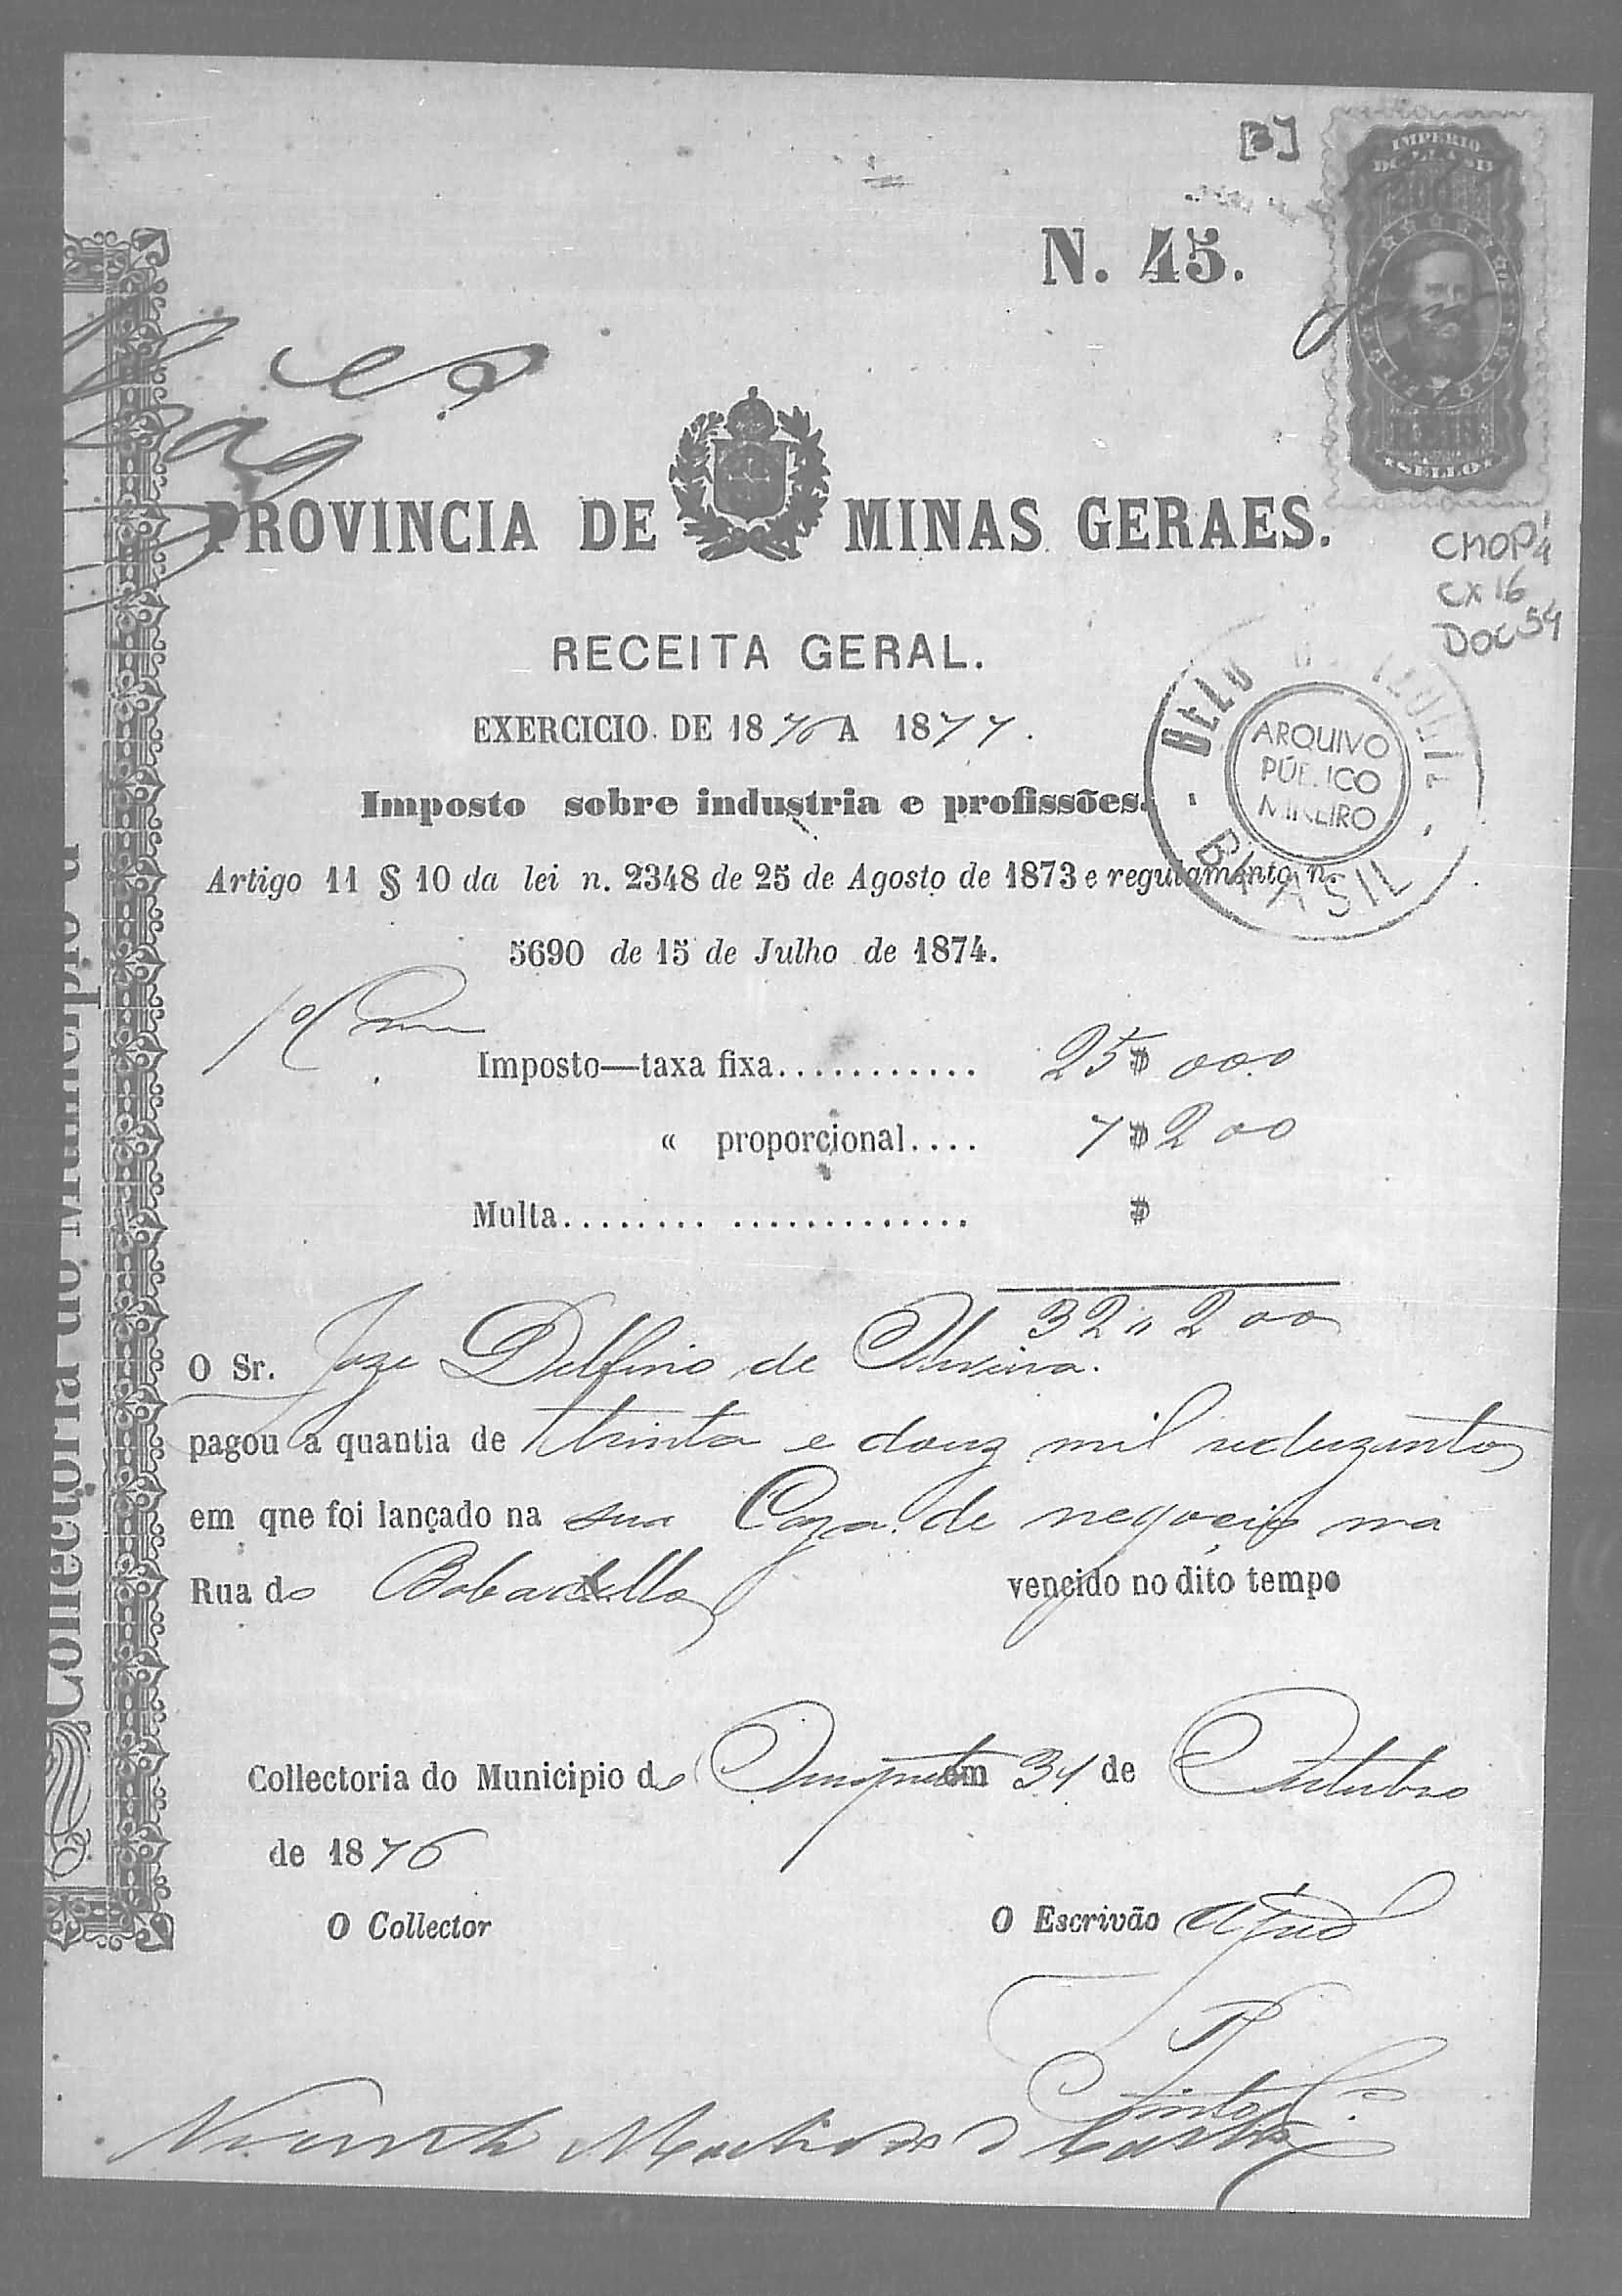 [3]
IMPERIO
DO BRASIL
SELLO
N. 45.
PROVINCIA DE MINAS GERAES.
CMOP
cx 16
DOC 54
RECEITA GERAL.
BELO HORIZONTE
ARQUIVO
PÚBLICO
MINEIRO
BRASIL
EXERCICIO DE 1876 A 1877.
Imposto sobre industria e profissões.
Artigo 11 § 10 da lei n. 2348 de 25 de Agosto de 1873 e regulamento n.
5690 de 15 de Julho de 1874.
Imposto—taxa fixa............ 25$000
« proporcional.... 7$200
Multa........ ............. $
32"200
O Sr. Joze Delfino de Oliveira.
pagou a quantia de trinta e douz mil reduzentos
em qne foi lançado na sua Caza de negocio na
Rua do Bobadella vencido no dito tempo
Collectoria do Municipio do Ouropreto em 31 de Outubro
de 1876
O Collector O Escrivão
Vicente Machado de Castro
Collectoria do Municipio d